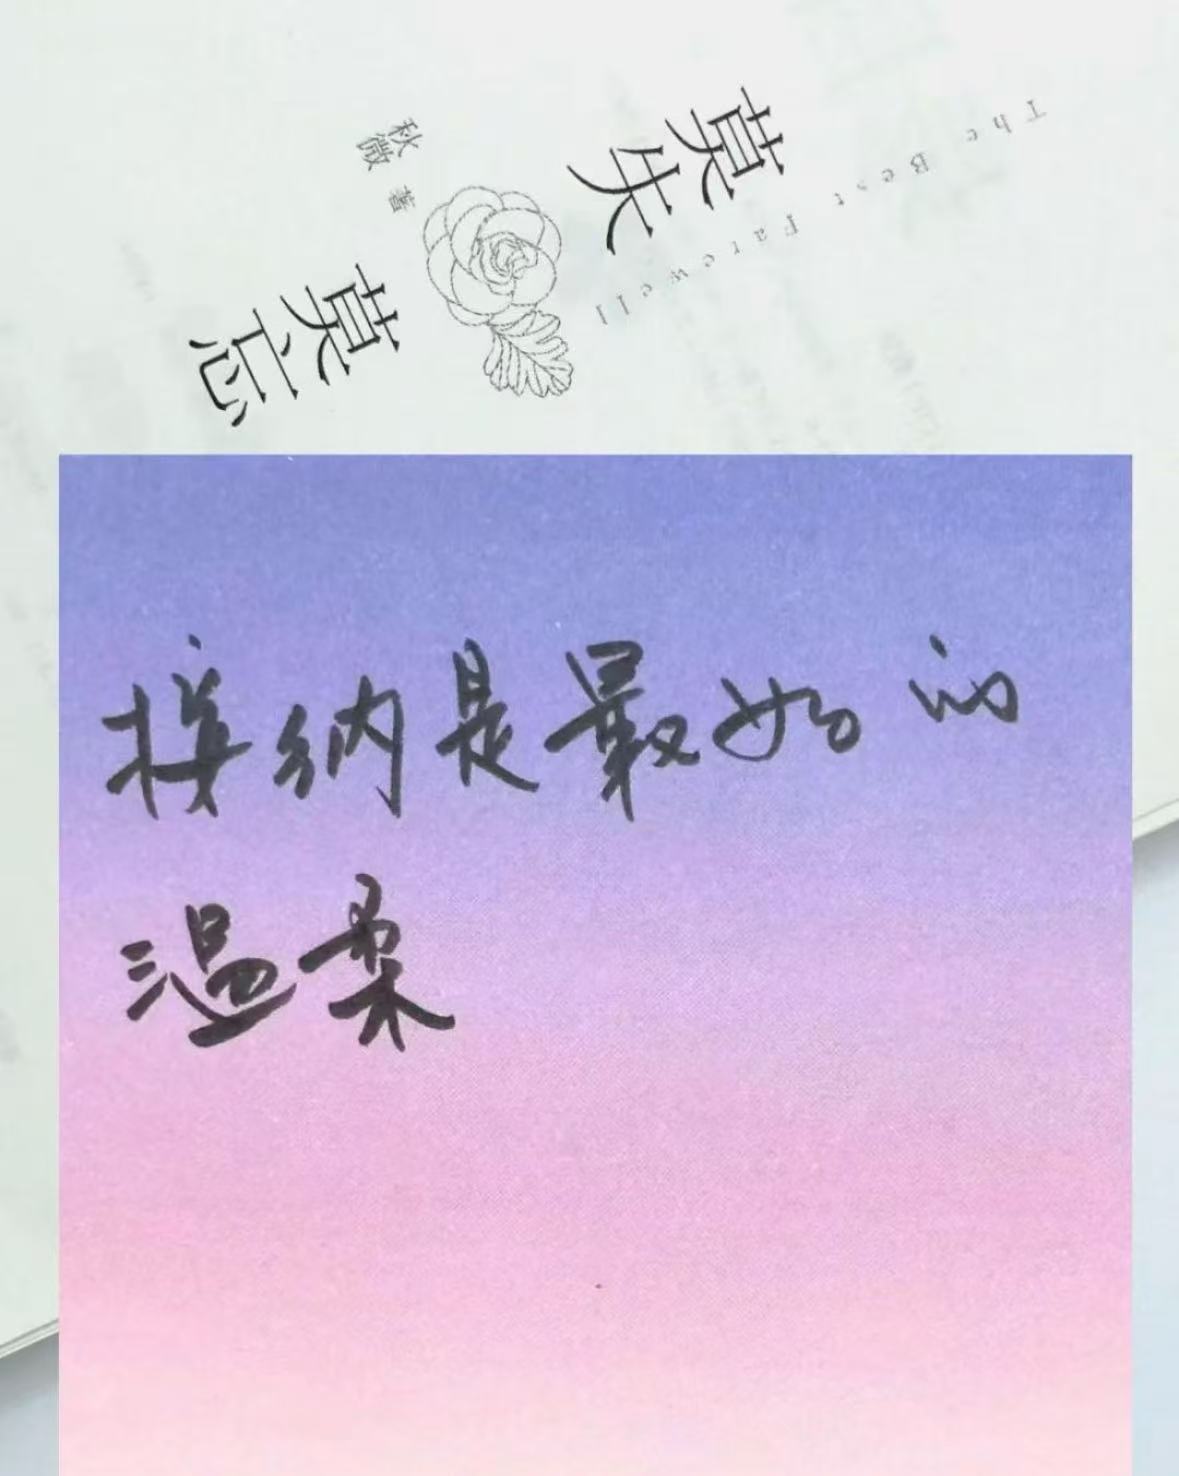 莫失
莫忘
秋微 著
The Best Farewell
接纳是最好的
温柔